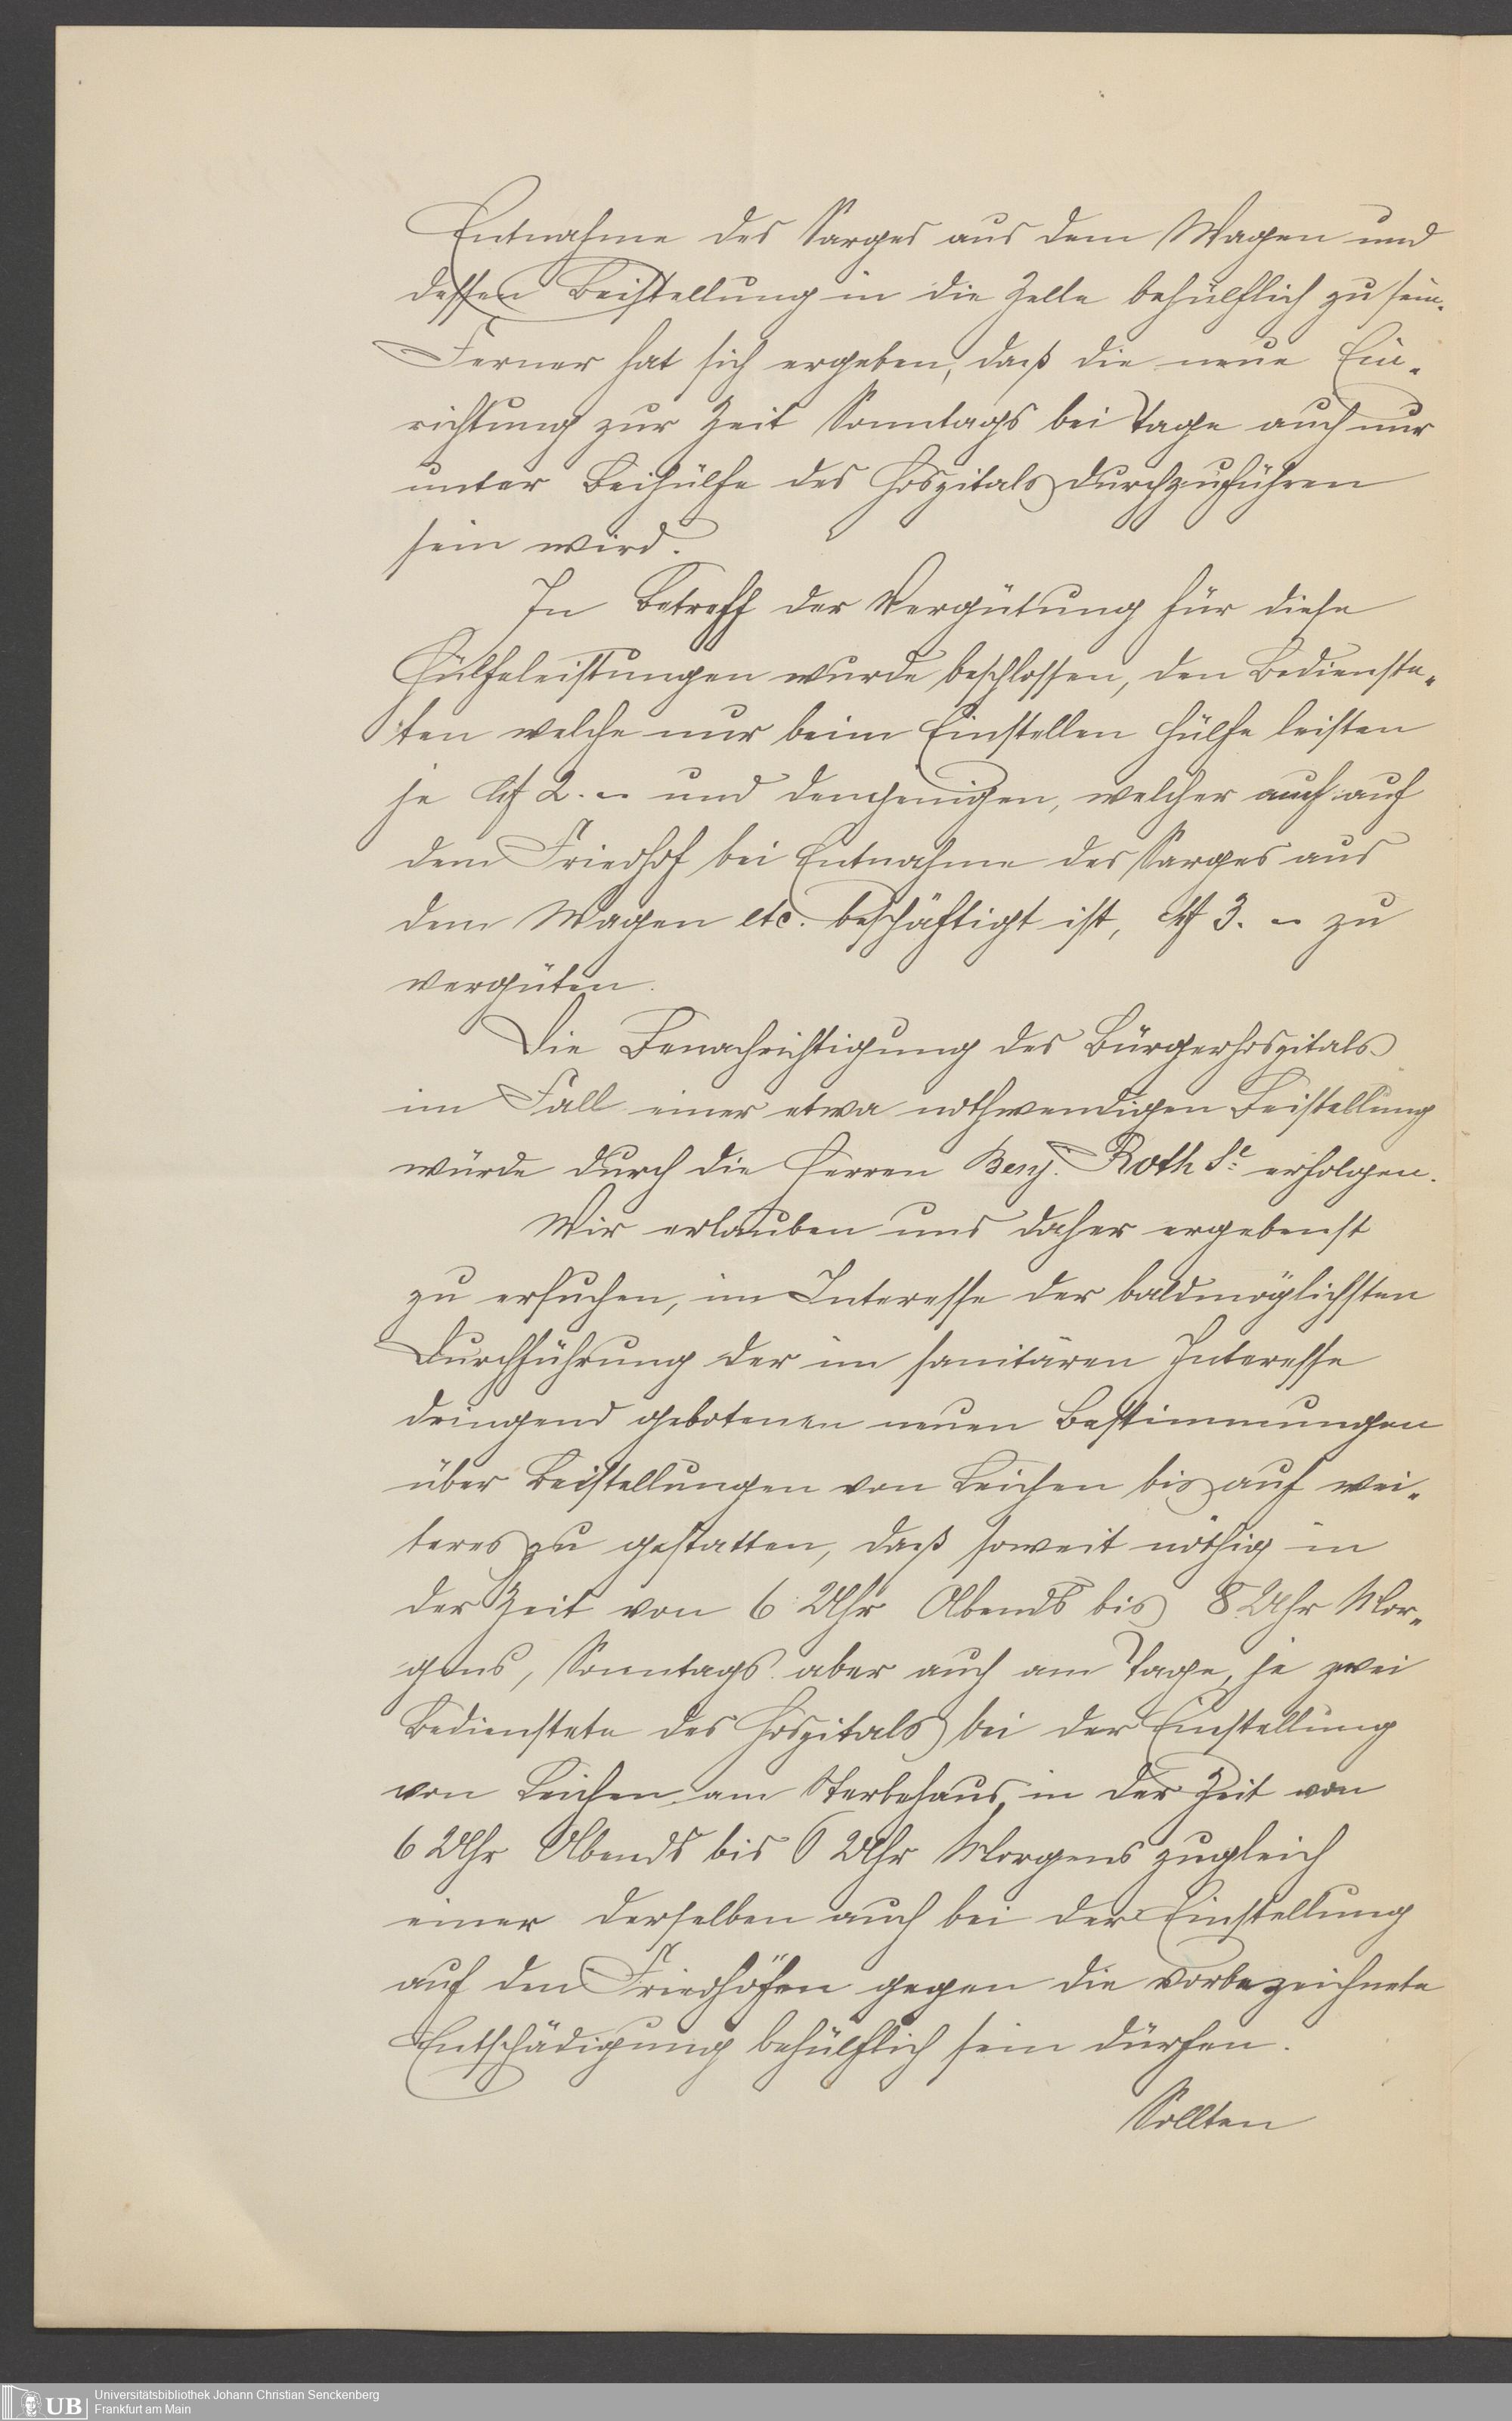 Entnahme des Sarges aus dem Wagen und
dessen Beistellung in die Zelle behülflich zu sein.
Ferner hat sich ergeben, daß die neue Ein-
richtung zur Zeit Sonntags bei Tage auch nur
unter Beihülfe des Hospitals durchzuführen
sein wird.
In Betreff der Vergütung für diese
Hülfeleistungen wurde beschlossen, den Bedienste-
ten welche nur beim Einstellen Hülfe leisten
je M 2.- und demjenigen, welcher auch auf
dem Friedhof bei Entnahme des Sarges aus
dem Wagen etc. beschäftigt ist, M 3.- zu
vergüten.
Die Benachrichtigung des Bürgerhospitals
im Fall einer etwa nothwendigen Beistellung
würde durch die Herren Benj. Roth Se erfolgen.
Wir erlauben uns daher ergebenst
zu ersuchen, im Interesse der baldmöglichsten
Durchführung der im sanitären Interesse
dringend gebotenen neuen Bestimmungen
über Beistellungen von Leichen bis auf wei-
teres zu gestatten, daß soweit nöthig in
der Zeit von 6 Uhr Abends bis 8 Uhr Mor-
gens, Sonntags aber auch am Tage, je zwei
Bedienstete des Hospitals bei der Einstellung
von Leichen am Sterbehaus, in der Zeit von
6 Uhr Abends bis 6 Uhr Morgens zugleich
einer derselben auch bei der Einstellung
auf den Friedhöfen gegen die vorbezeichnete
Entschädigung behülflich sein dürfen.
Sollten
UB
Universitätsbibliothek Johann Christian Senckenberg
Frankfurt am Main